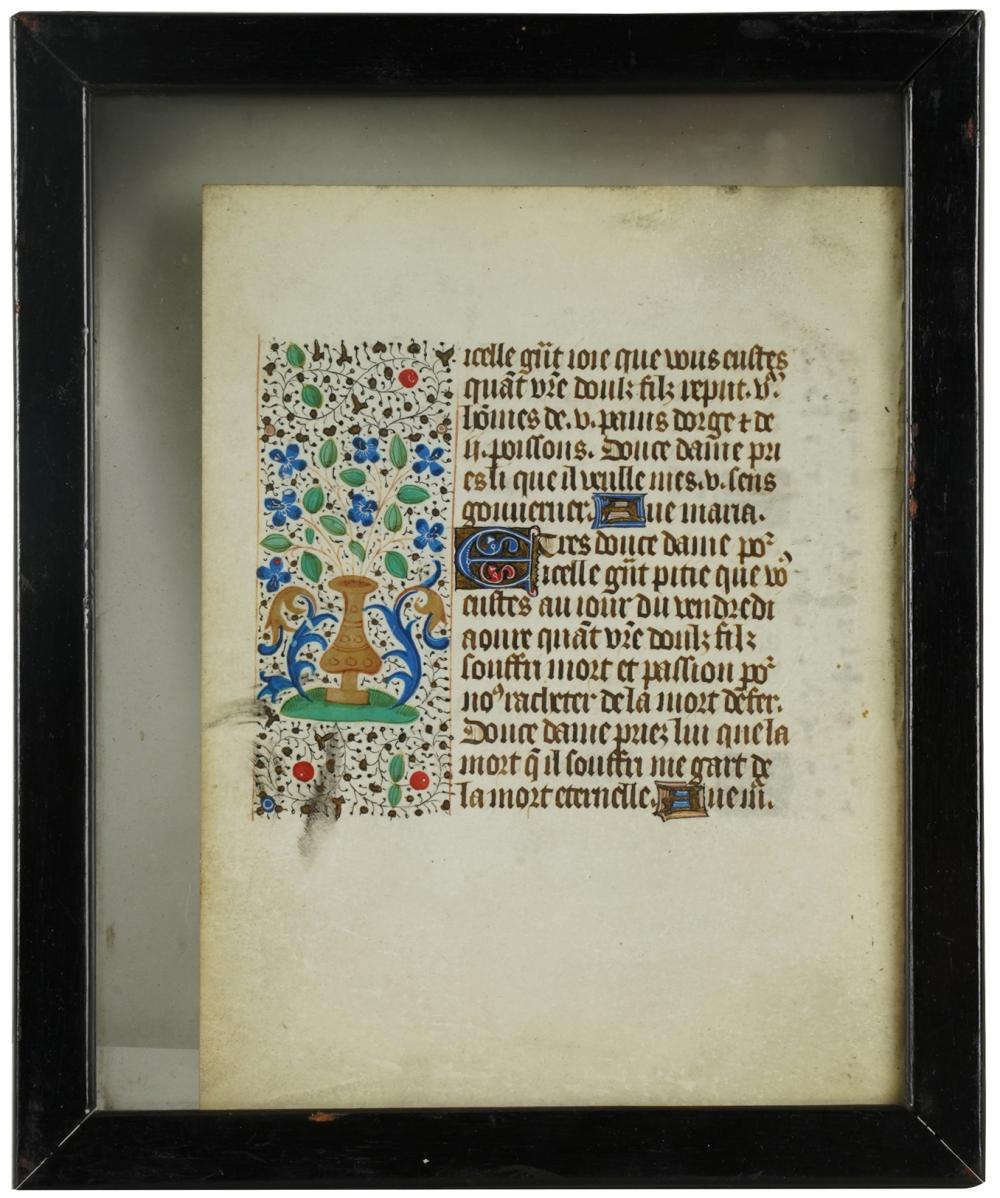 icelle gn̄t ioie que vous eustes
quāt vr̄e doulz filz reput .vᵒ.
hōmes de .v. pains dorge ⁊ de
ii. poissons. Douce dame pri
es li que il veulle mes .v. sens
gouuerner. Aue maria.
E tres douce dame poʳ
icelle gn̄t pitie que vᵒ
eustes au iour du vendredi
aoure quāt vr̄e doulz filz
souffri mort et passion poʳ
noꝰ racheter de la mort defer.
Douce dame priez lui que la
mort q̄ il souffri me gart de
la mort eternelle. Aue m̄.